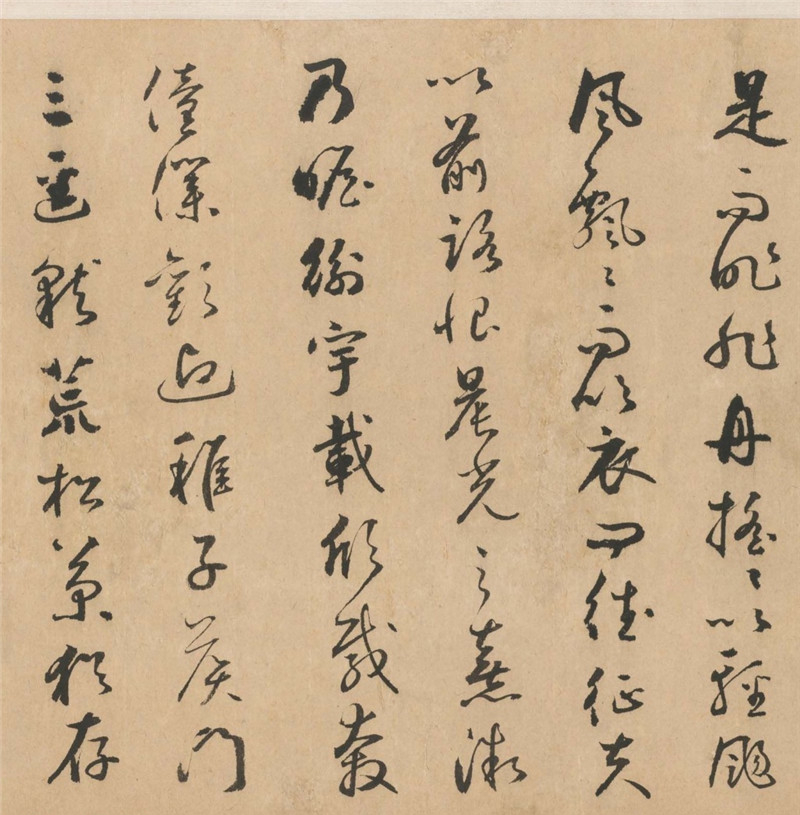 是而昨非舟搖〻以輕颺
風飄〻而吹衣問征夫
以前路恨晨光之熹微
乃瞻衡宇載欣載奔
僮僕歡迎稚子候門
三逕就荒松菊猶存